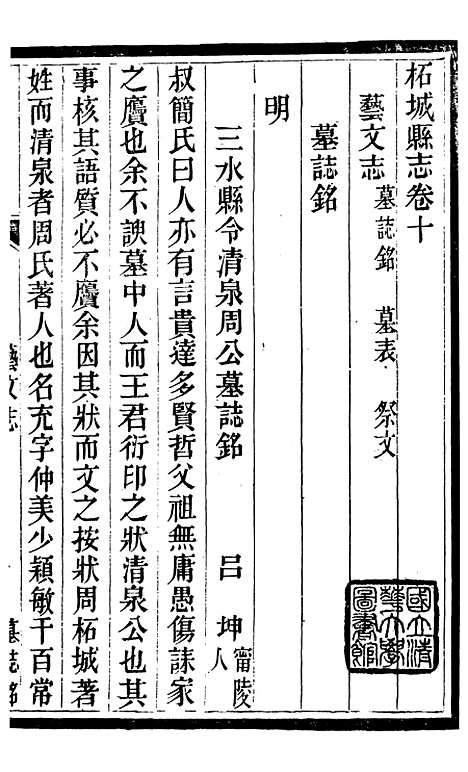 柘城縣志卷十
藝文志 墓誌銘 墓表 祭文
墓誌銘
明
三水縣令清泉周公墓誌銘 呂坤 甯陵人
叔簡氏曰人亦有言貴達多賢哲父祖無庸愚傷誄家
之贗也余不諛墓中人而王君衍印之狀清泉公也其
事核其語質必不贗余因其狀而文之按狀周柘城著
姓而清泉者周氏著人也名充字仲美少穎敏千百常
藝文志
墓誌銘
國立清華大學圖書館